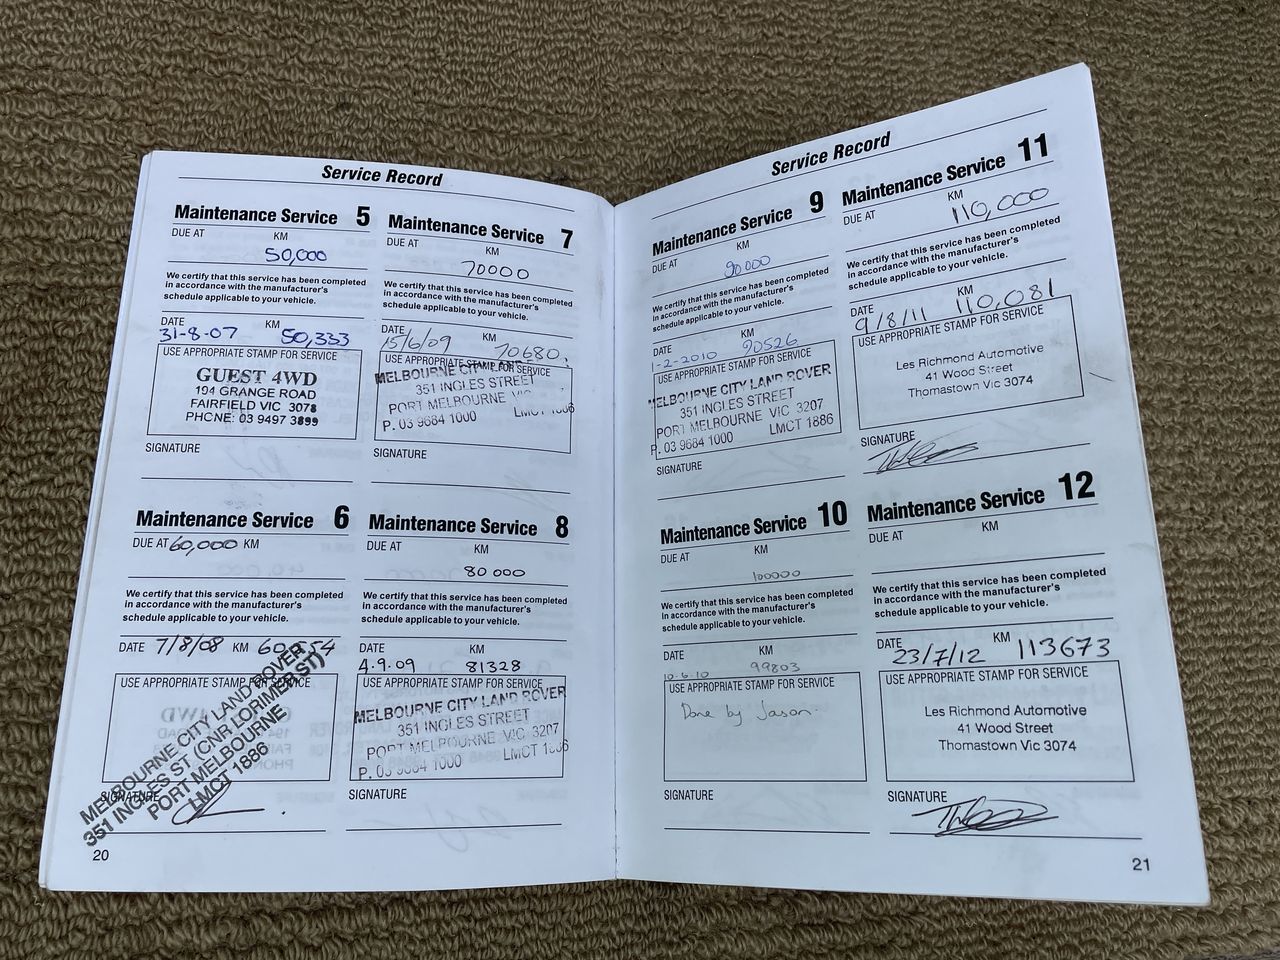 Service Record
Maintenance Service 5
DUE AT KM
50,000
We certify that this service has been completed
in accordance with the manufacturer's
schedule applicable to your vehicle.
DATE KM
31-8-07 50,333
USE APPROPRIATE STAMP FOR SERVICE
GUEST 4WD
194 GRANGE ROAD
FAIRFIELD VIC 3078
PHONE: 03 9497 3899
SIGNATURE
Maintenance Service 6
DUE AT 60,000 KM
We certify that this service has been completed
in accordance with the manufacturer's
schedule applicable to your vehicle.
DATE 7/8/08 KM
USE APPROPRIATE STAMP FOR SERVICE
MELBOURNE CITY LAND ROVER
351 INGLES ST (CNR LORIMER ST)
PORT MELBOURNE
LMCT 1886
SIGNATURE
20
Maintenance Service 7
DUE AT KM
70000
We certify that this service has been completed
in accordance with the manufacturer's
schedule applicable to your vehicle.
DATE KM
15/6/09 70680.
USE APPROPRIATE STAMP FOR SERVICE
MELBOURNE CITY LAND
351 INGLES STREET
PORT MELBOURNE VIC
P. 03 9684 1000 LMCT 1886
SIGNATURE
Maintenance Service 8
DUE AT KM
80 000
We certify that this service has been completed
in accordance with the manufacturer's
schedule applicable to your vehicle.
DATE KM
4.9.09 81328
USE APPROPRIATE STAMP FOR SERVICE
MELBOURNE CITY LAND ROVER
351 INGLES STREET
PORT MELBOURNE VIC 3207
P. 03 9684 1000 LMCT 1886
SIGNATURE
Service Record
Maintenance Service 9
DUE AT KM
90000
We certify that this service has been completed
in accordance with the manufacturer's
schedule applicable to your vehicle.
DATE KM
1-2-2010 90526
USE APPROPRIATE STAMP FOR SERVICE
MELBOURNE CITY LAND ROVER
351 INGLES STREET
PORT MELBOURNE VIC 3207
P. 03 9684 1000 LMCT 1886
SIGNATURE
Maintenance Service 10
DUE AT KM
100000
We certify that this service has been completed
in accordance with the manufacturer's
schedule applicable to your vehicle.
DATE KM
10-6-10 99803
USE APPROPRIATE STAMP FOR SERVICE
Done by Jason.
SIGNATURE
Maintenance Service 11
DUE AT KM
110,000
We certify that this service has been completed
in accordance with the manufacturer's
schedule applicable to your vehicle.
DATE KM
9/8/11 110,081
USE APPROPRIATE STAMP FOR SERVICE
Les Richmond Automotive
41 Wood Street
Thomastown Vic 3074
SIGNATURE
Maintenance Service 12
DUE AT KM
We certify that this service has been completed
in accordance with the manufacturer's
schedule applicable to your vehicle.
DATE KM
23/7/12 113673
USE APPROPRIATE STAMP FOR SERVICE
Les Richmond Automotive
41 Wood Street
Thomastown Vic 3074
SIGNATURE
21